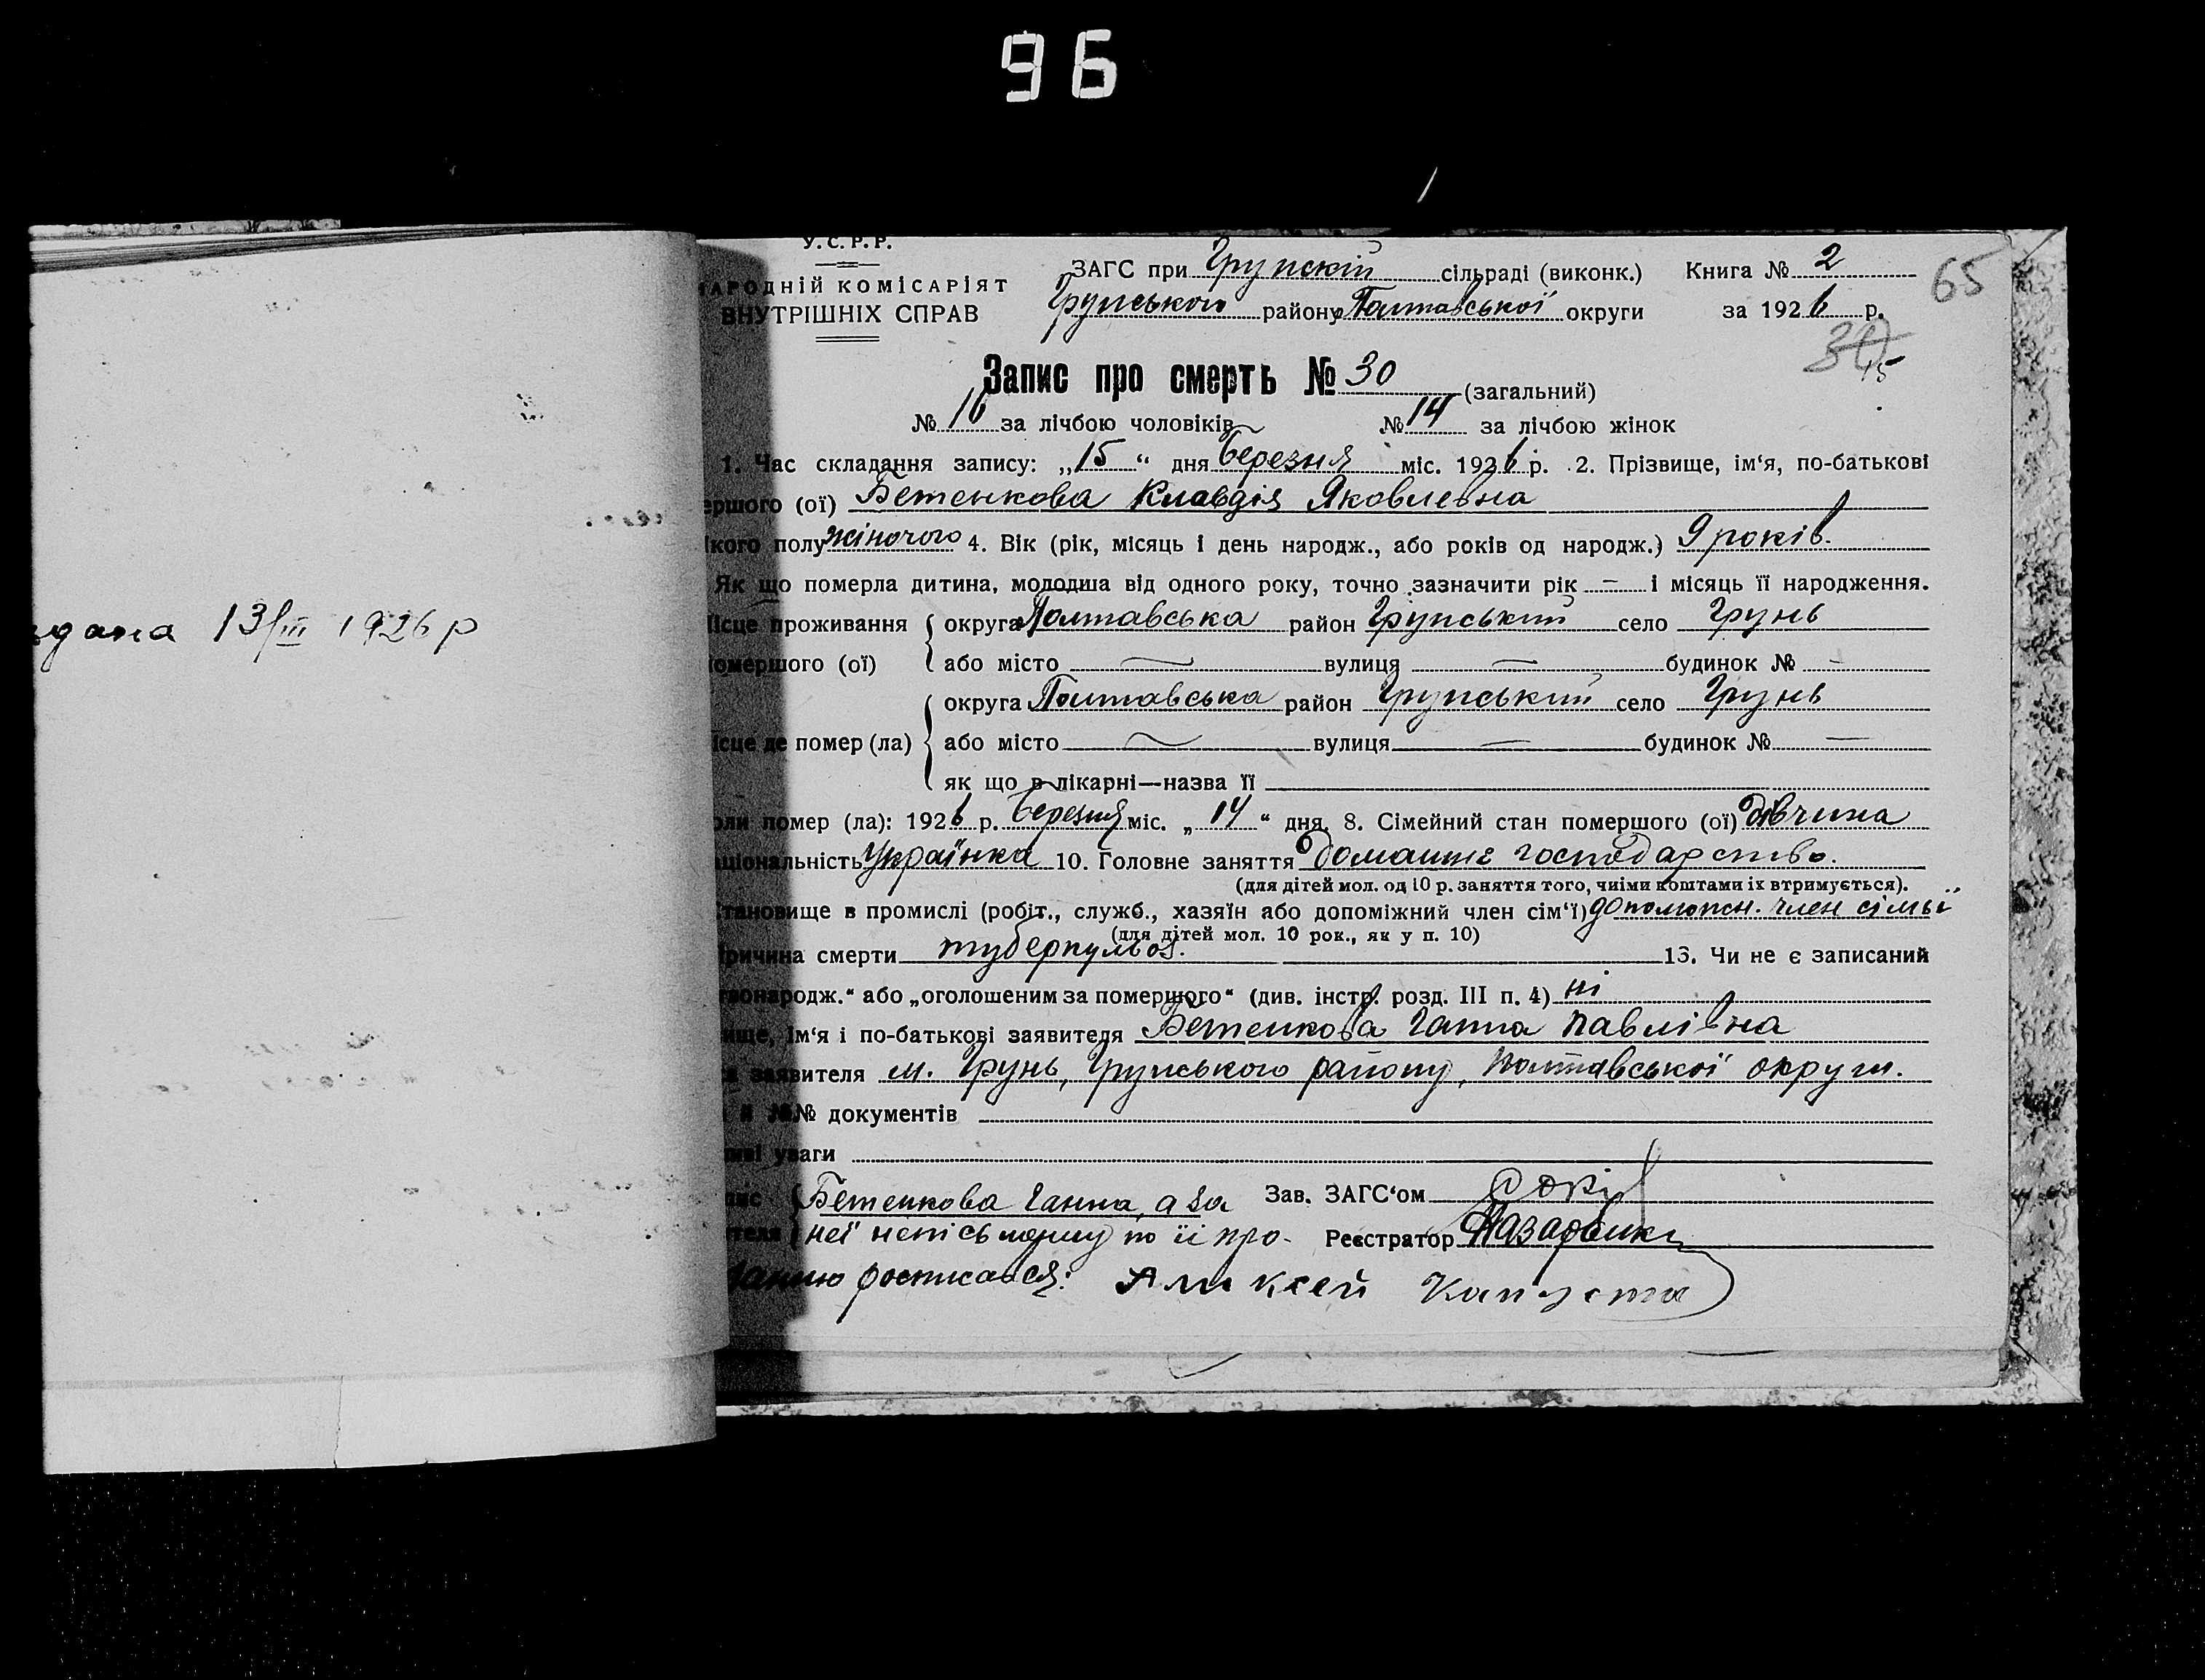 96
У.С.Р.Р.
НАРОДНІЙ КОМІСАРІЯТ
ВНУТРІШНІХ СПРАВ
ЗАГС при Грунській сільраді (виконк.) Книга № 2
65
Грунського району Полтавської округи за 1926 р.
30
15
Запис про смерть № 30 (загальний)
№ 16 за лічбою чоловіків № 14 за лічбою жінок
1. Час складання запису: „15“ дня березня міс. 1926 р. 2. Прізвище, ім‘я, по-батькові
ершого (ої) Бетенкова Клавдія Яковлевна
кого полу жіночого 4. Вік (рік, місяць і день народж., або років од народж.) 9 років.
Як що померла дитина, молодша від одного року, точно зазначити рік — і місяць її народження.
ісце проживання округа Полтавська район Грунський село Грунь
омершого (ої) або місто — вулиця — будинок № —
округа Полтавська район Грунський село Грунь
ісце де помер (ла) або місто — вулиця — будинок № —
як що в лікарні—назва її
оли помер (ла): 1926 р. березня міс. „14“ дня. 8. Сімейний стан помершого (ої) дівчина
аціональність Українка 10. Головне заняття домашне господарство.
(для дітей мол. од 10 р. заняття того, чиїми коштами їх втримується).
тановище в промислі (робіт., служб., хазяїн або допоміжний член сім‘ї) допоможн. член сімьї
(для дітей мол. 10 рок., як у п. 10)
ричина смерти туберкульоз. 13. Чи не є записаний
вонародж.“ або „оголошеним за померщого“ (див. інстр. розд. III п. 4) ні
ище, ім‘я і по-батькові заявителя Бетенкова Ганна Павлівна
а заявителя м. Грунь, Грунського району, Полтавської округи.
й №№ документів
иві уваги
пис Бетенкова Ганна, а за Зав. ЗАГС‘ом
теля неї неписьменну по її про- Реєстратор
ханню росписався: Аликсей Капуста
дана 13/III 1926 р